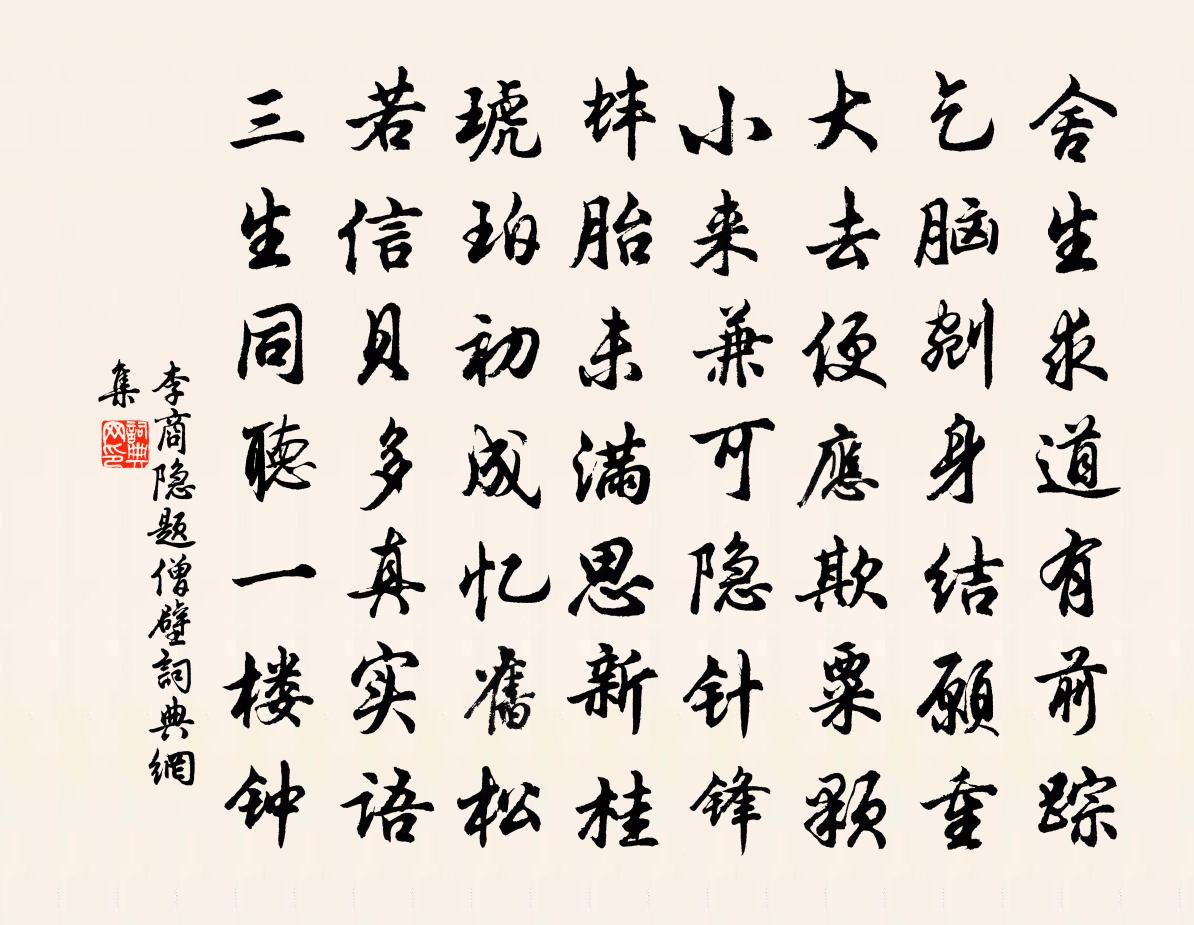 舍生求道有前踪
乞脑剜身结愿重
大去便应欺粟颗
小来兼可隐针锋
蚌胎未满思新桂
琥珀初成忆旧松
若信贝多真实语
三生同聽一楼钟
李商隐题僧壁詞典網
集
詞典
网印